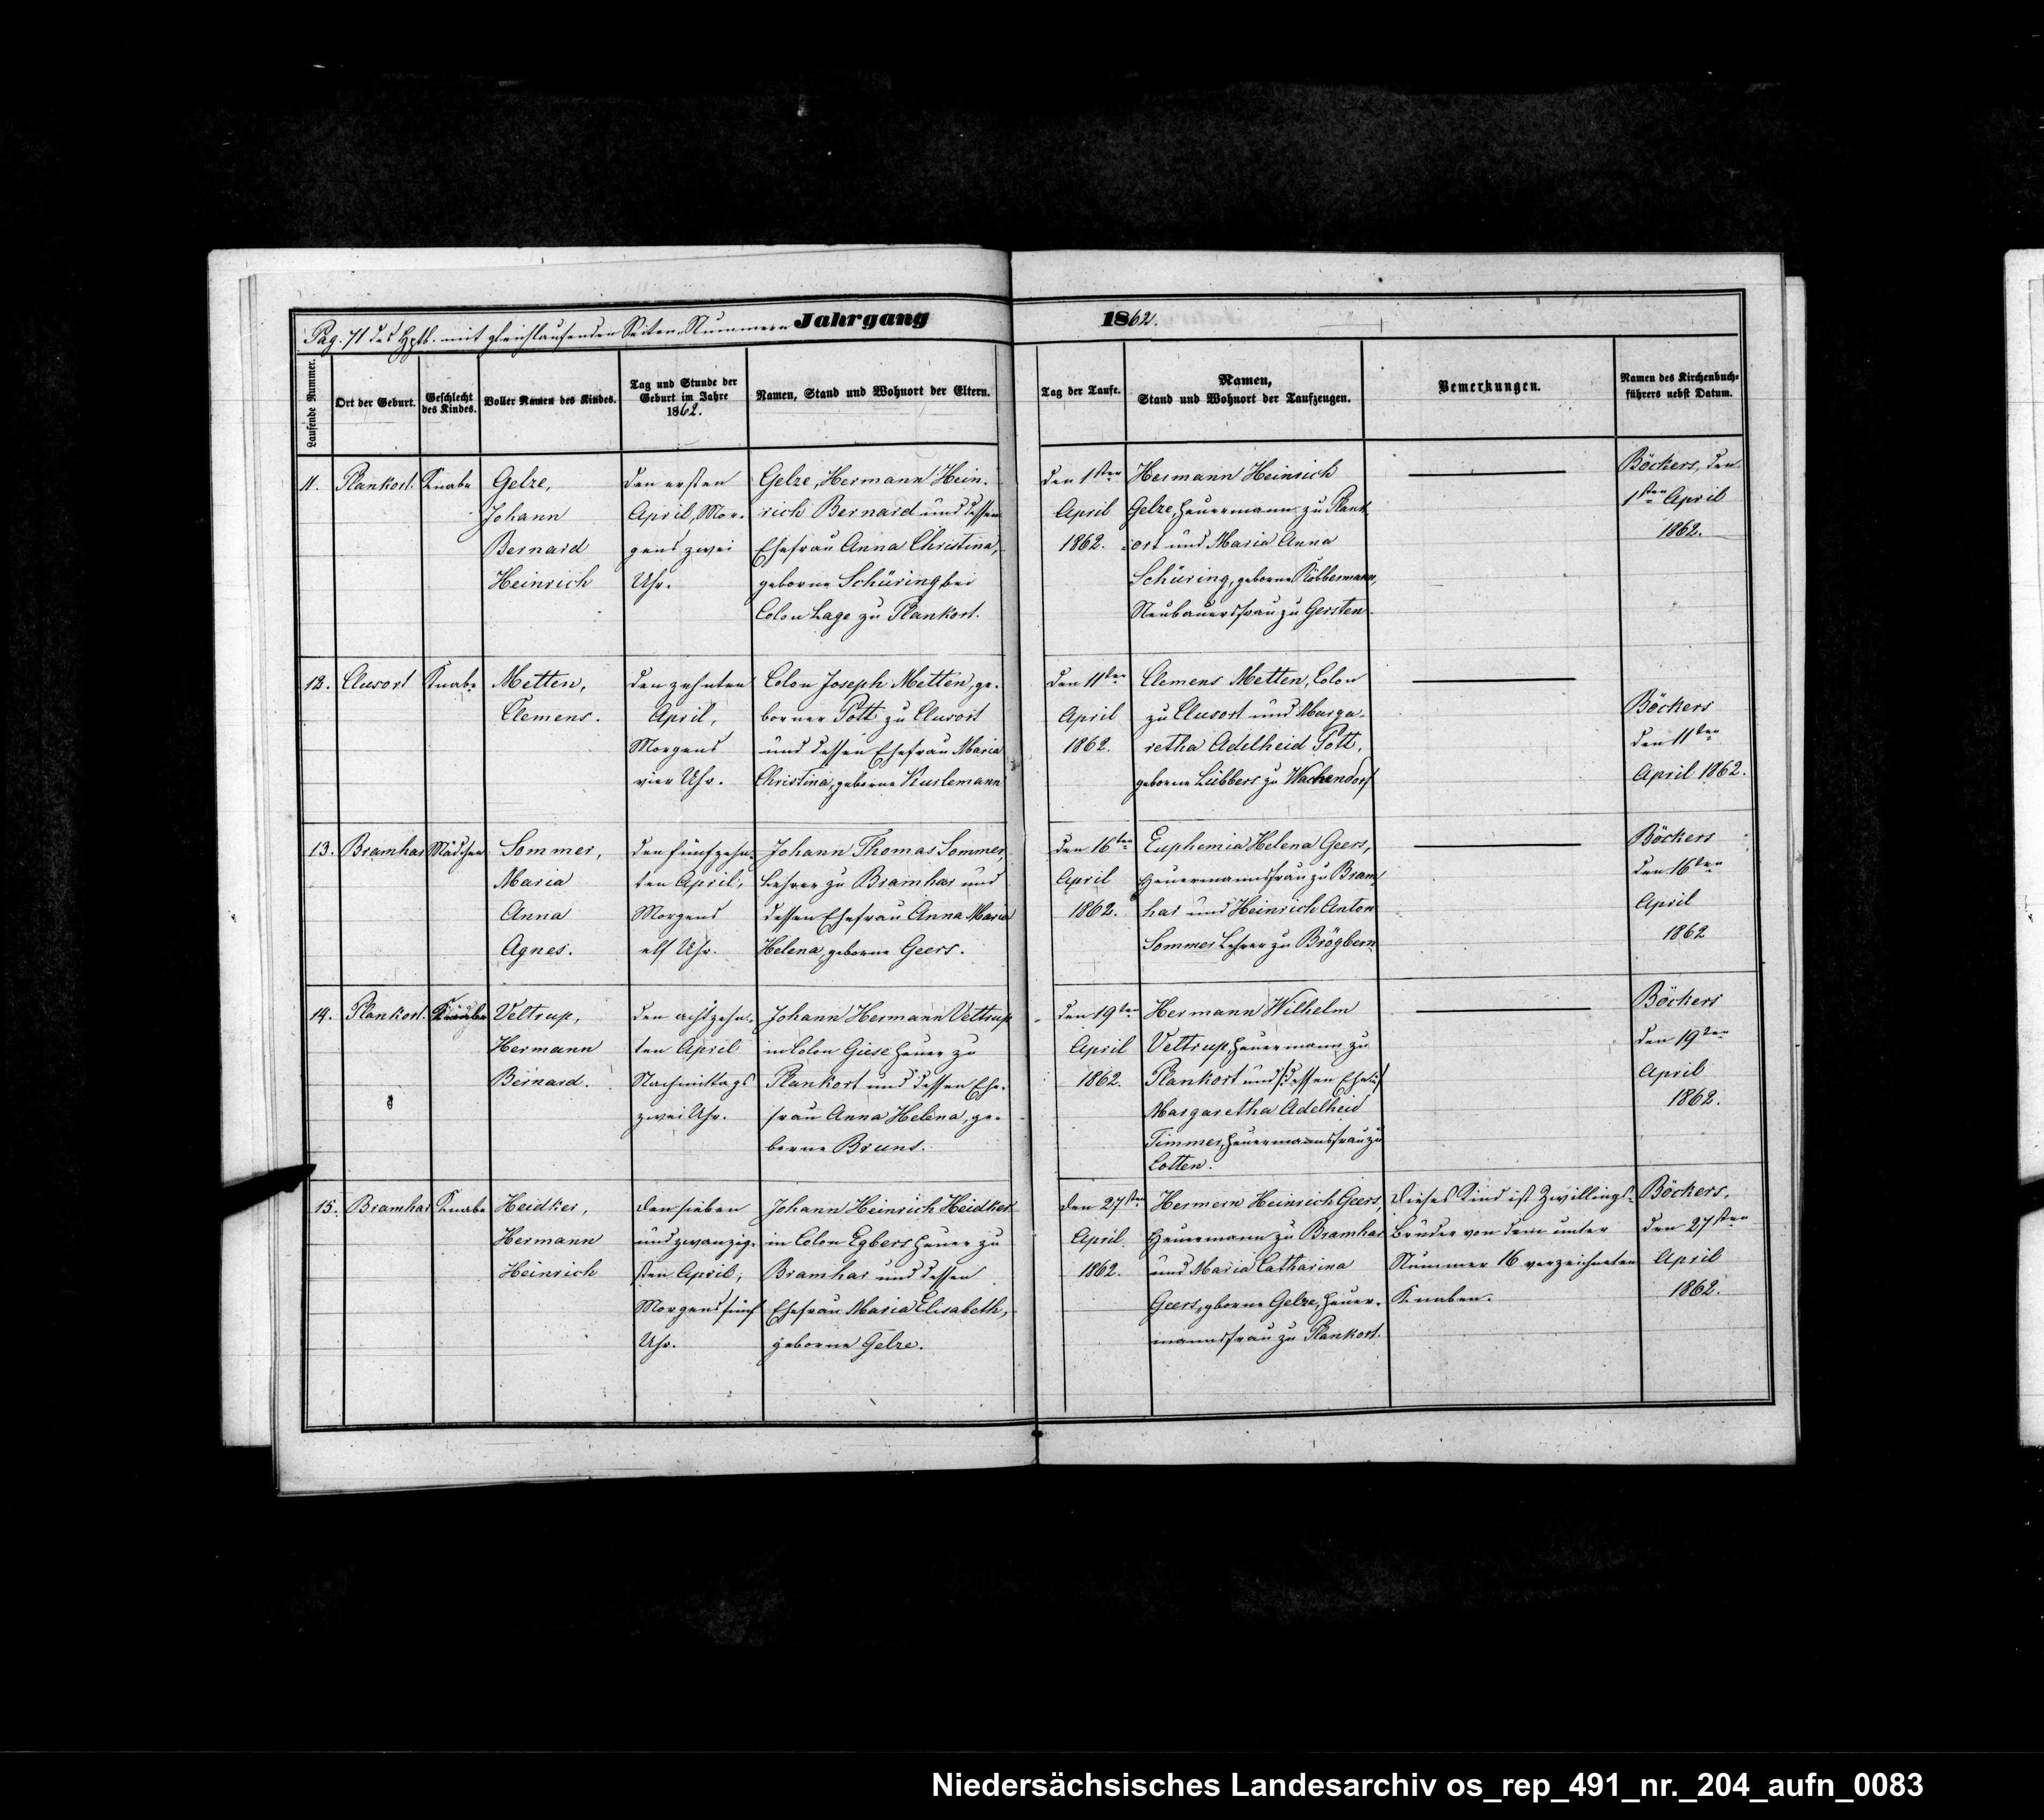 Pag. 71 des Hptb. mit gleichlaufenden Seiten-Nummern Jahrgang 1862.
Laufende Nummer.
Ort der Geburt.
Geschlecht
des Kindes.
Voller Namen des Kindes.
Tag und Stunde der
Geburt im Jahre
1862.
Namen, Stand und Wohnort der Eltern.
Tag der Taufe.
Namen,
Stand und Wohnort der Taufzeugen.
Bemerkungen.
Namen des Kirchenbuch-
führers nebst Datum.
11.
Plankort.
Knabe
Gelze,
Johann
Bernard
Heinrich
den ersten
April, Mor-
gens zwei
Uhr.
Gelze, Hermann Hein-
rich Bernard und dessen
Ehefrau Anna Christina,
geborne Schüring bei
Colon Lage zu Plankort.
den 1sten
April
1862.
Hermann Heinrich
Gelze, Heuermann zu Plank-
ort und Maria Anna
Schüring, geborne Robbermann,
Neubauersfrau zu Gersten.
Böckers, den
1sten April
1862.
12.
Clusort
Knabe
Metten,
Clemens.
den zehnten
April,
Morgens
vier Uhr.
Colon Joseph Metten, ge-
borner Pott zu Clusort
und dessen Ehefrau Maria
Christina, geborne Kuslemann
den 11ten
April
1862.
Clemens Metten, Colon
zu Clusort und Marga-
retha Adelheid Pott,
geborne Lübbers zu Wachendorf
Böckers
den 11ten
April 1862.
13.
Bramhar
Mädchen
Sommer,
Maria
Anna
Agnes.
den fünfzehn-
ten April,
Morgens
elf Uhr.
Johann Thomas Sommer,
Lehrer zu Bramhar und
dessen Ehefrau Anna Maria
Helena, geborne Geers.
den 16ten
April
1862.
Euphemia Helena Geers,
Heuermannsfrau zu Bram-
har und Heinrich Anton
Sommer Lehrer zu Brögbern
Böckers
den 16ten
April
1862
14.
Plankort.
Knabe
Veltrup,
Hermann
Bernard.
den achtzehn-
ten April
Nachmittags
zwei Uhr.
Johann Hermann Veltrup
in Colon Giese Heuer zu
Plankort und dessen Ehe-
frau Anna Helena, ge-
borne Bruns.
den 19ten
April
1862.
Hermann Wilhelm
Veltrup, Heuermann zu
Plankort und dessen
Margaretha Adelheid
Timmer, Heuermannsfrau zu
Lotten.
Böckers
den 19ten
April
1862.
15.
Bramhar
Knabe
Heidker,
Hermann
Heinrich
den sieben
und zwanzig-
sten April,
Morgens fünf
Uhr.
Johann Heinrich Heidker
in Colon Egbers Heuer zu
Bramhar und dessen
Ehefrau Maria Elisabeth,
geborne Gelze.
den 27sten
April
1862.
Hermern Heinrich Geers,
Heuermann zu Bramhar
und Maria Catharina
Geers, gborne Gelze, Heuer-
mannsfrau zu Plankort.
Dieses Kind ist Zwillings-
bruder von dem unter
Nummer 16 verzeichneten
Knaben.
Böckers,
den 27sten
April
1862.
Niedersächsisches Landesarchiv os_rep_491_nr._204_aufn_0083